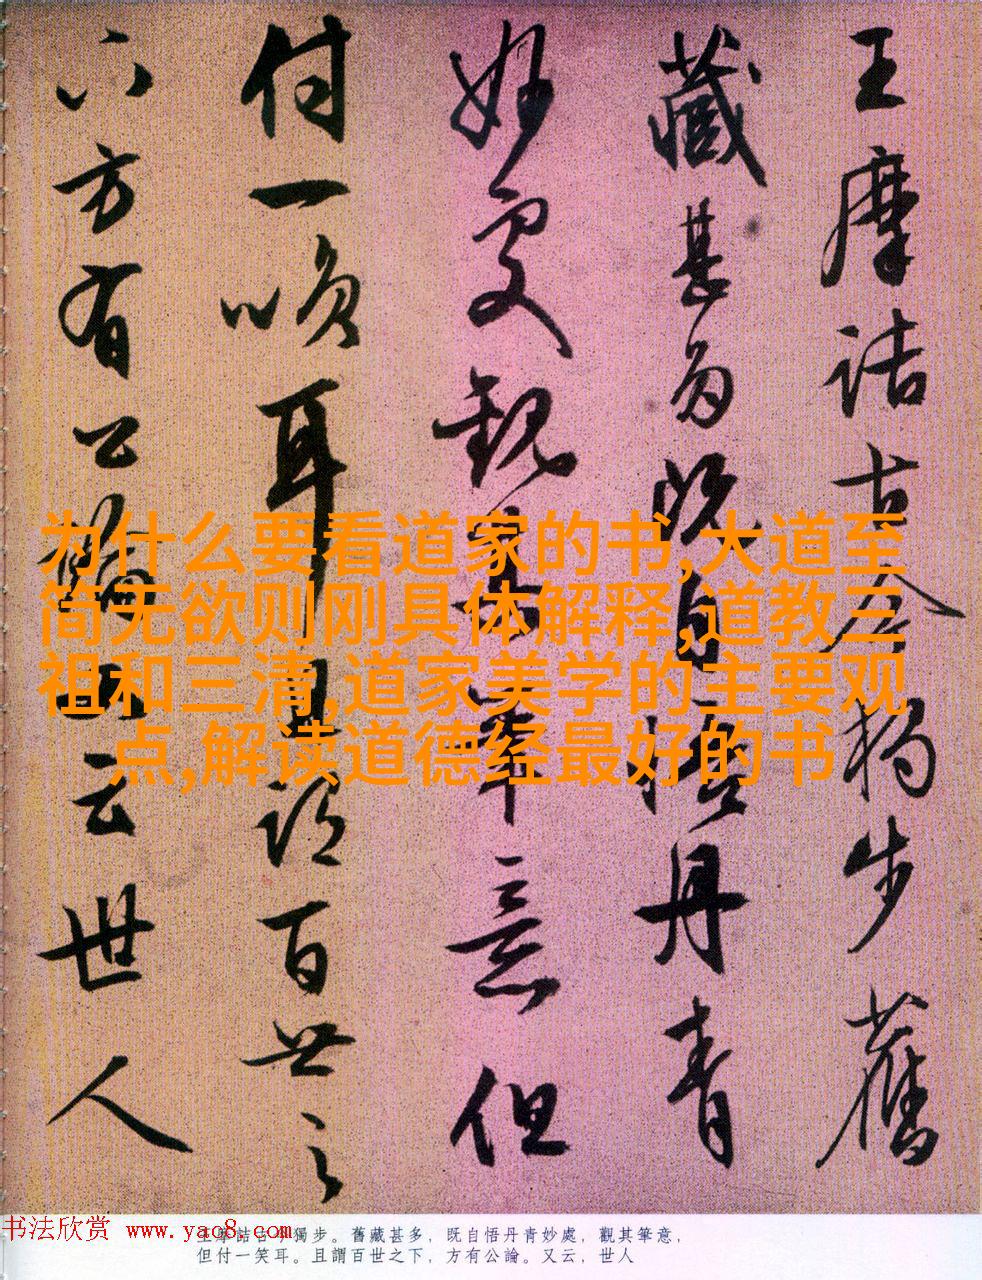 王摩詰古今獨步舊
藏甚多既自悟丹青
妙處觀其筆意但
付一咲耳且謂百世之
下方有公論又云世人
为什么要看道家的书,大道至
简无欲则刚具体解释,道教三
祖和三清,道家美学的主要观
点,解读道德经最好的书
书法欣赏 www.yac8.com
王摩詰古今獨步。舊藏甚多，既自悟丹青妙處，觀其筆意，
但付一笑耳。且謂百世之下，方有公論。又云，世人